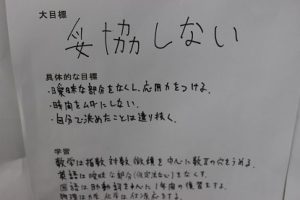 大目標
妥協しない
具体的な目標
・曖昧な部分をなくし、応用力をつける。
・時間をムダにしない。
・自分で決めたことは遣り抜く。
学習
数学は指数対数微積を中心に数Ⅱの穴をうめる。
英語は曖昧な部分(仮定法など)をなくす。
国語は助動詞を含んだ1年間の復習をする。